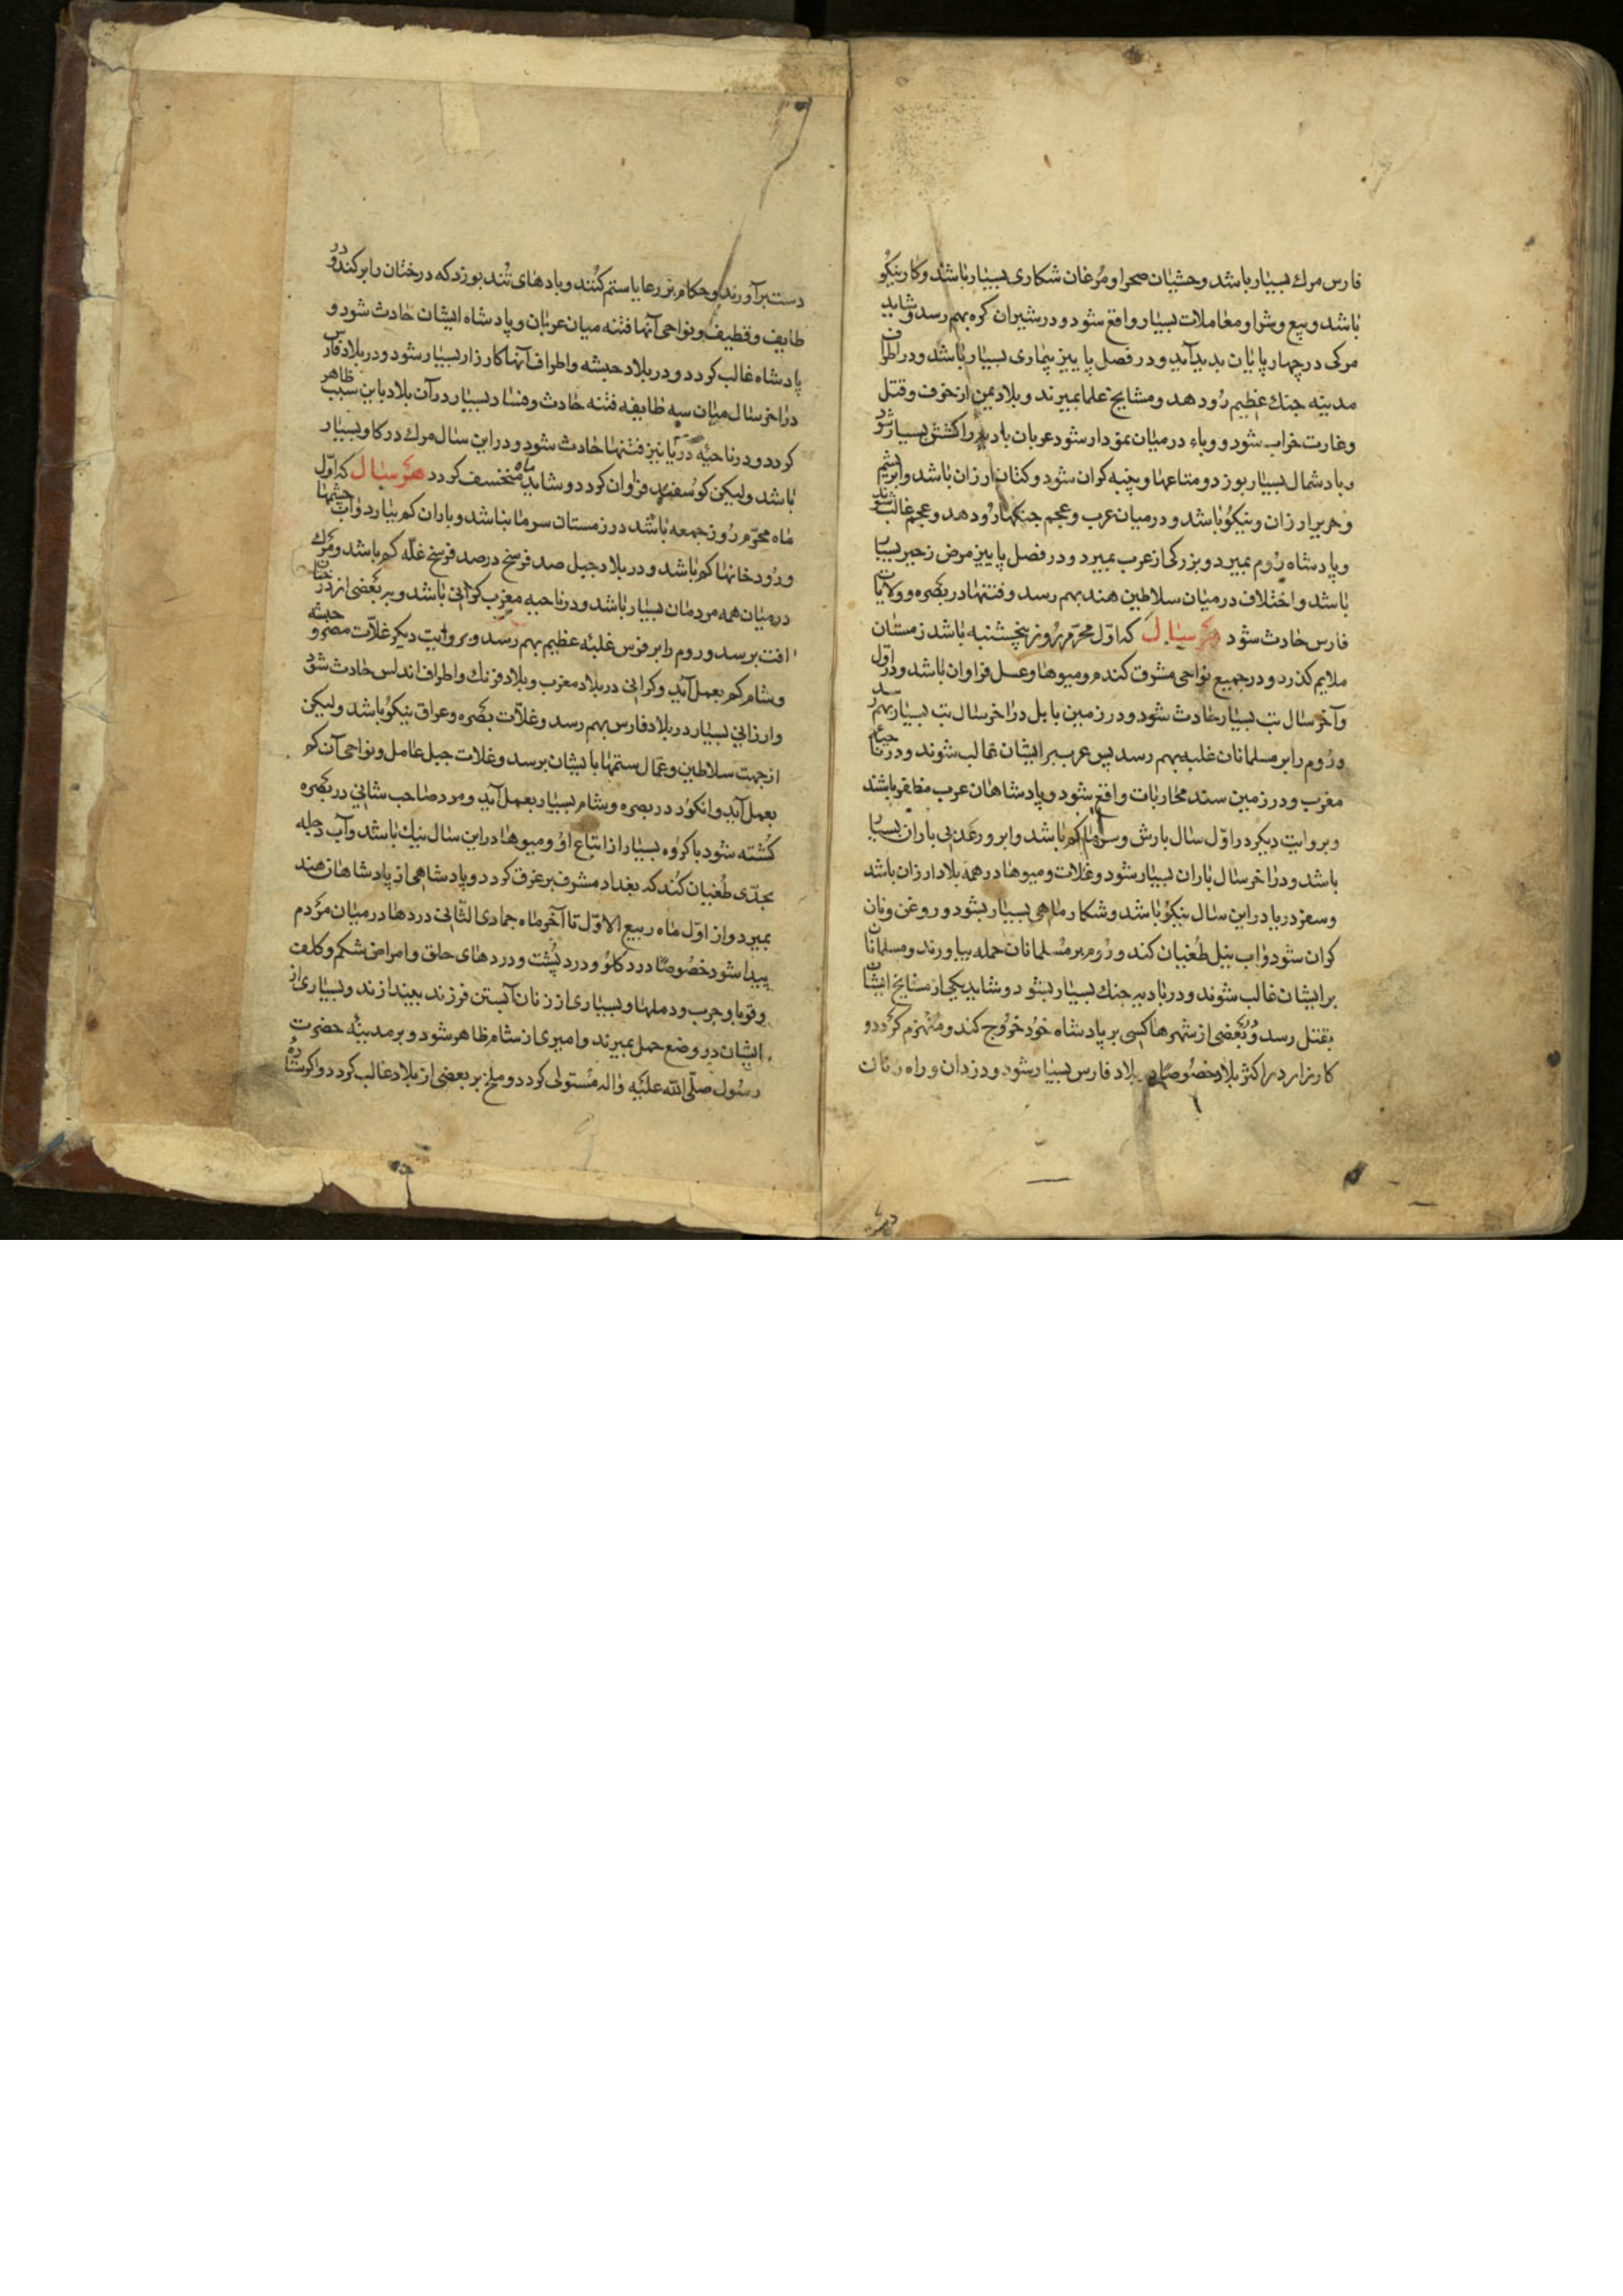 فارس مرك بسیار باشد وحشیان صحرا و مرغان شکاری بسیار باشند و کار نیکو
باشد و بیع و شرا و معاملات بسیار واقع شود و در شیران کره بهم رسد و شاید
مرکی در چهار پایان بدید آید و در فصل پاییز بیماری بسیار باشد و در اطراف
مدینه جنك عظیم رود هد و مشایخ علما بمیرند و بلاد یمن از خوف و قتل
و غارت خراب شود و وباء در میان نمودار شود عربان بادیه را کشش بسیار شود
و باد شمال بسیار بوزد و متاعها و پنبه کران شود و کتان ارزان باشد و ابریشم
و حریر ارزان و نیکو باشد و در میان عرب و عجم جنکها رود هد و عجم غالب شوند
و پادشاه روم بمیرد و بزرکی از عرب بمیرد و در فصل پاییز مرض زحیر بسیار
باشد و اختلاف در میان سلاطین هند بهم رسد و فتنها در بصره و ولایات
فارس حادث شود هر سال که اول محرم روز پنجشنبه باشد زمستان
ملایم کذرد و در جمیع نواحی مشرق کندم و میوها و عسل فراوان باشد و در اول
و آخر سال تب بسیار حادث شود و در زمین بابل در اخر سال تب بسیار بهم رسد
و روم را بر مسلمانان غلبه بهم رسد پس عرب بر ایشان غالب شوند و در ناحیه
مغرب و در زمین سند محاربات واقع شود و پادشاهان عرب مظفر باشند
و بروایت دیکر در اول سال بارش و سرما کم باشد و ابر و رعد بی باران بسیار
باشد و در اخر سال باران بسیار شود و غلات و میوها در همه بلاد ارزان باشد
و سفر دریا در این سال نیکو باشد و شکار ماهی بسیار بشود و روغن و نان
کران شود و اب نیل طغیان کند و روم بر مسلمانان حمله بیاورند و مسلمانان
بر ایشان غالب شوند و در بادیه جنك بسیار بشود و شاید یکی از مشایخ ایشان
بقتل رسد و بعضی از شهرها کسی بر پادشاه خود خروج کند و منهزم کردد و
کارزار در اکثر بلاد خصوصا در بلاد فارس بسیار شود و دزدان و راه زنان
دست برآورند و حکام بر رعایا ستم کنند و بادهای تند بوزد که درختان را بر کند و در
طایف و قطیف و نواحی آنها فتنه میان عربان و پادشاه ایشان حادث شود و
پادشاه غالب کردد و در بلاد حبشه و اطراف آنها کارزار بسیار شود و در بلاد فارس
در اخر سال میان سه طایفه فتنه حادث و فساد بسیار در آن بلاد باین سبب ظاهر
کردد و در ناحیه دریا نیز فتنها حادث شود و در این سال مرك در کاو بسیار
باشد ولیکن کوسفند فراوان کردد و شاید ماه منخسف کردد هر سال که اول
ماه محرم روز جمعه باشد در زمستان سرما نباشد و باران کم بیارد و اب چشمها
و رودخانها کم باشد و در بلاد جبل صد فرسخ در صد فرسخ غله کم باشد و مرك
در میان همه مردمان بسیار باشد و در ناحیه مغرب کرانی باشد و بر بعضی از درختان
افت برسد و روم را بر فرس غلبه عظیم بهم رسد و بروایت دیکر غلات مصر و حبشه
و شام کم بعمل آید و کرانی در بلاد مغرب و بلاد فرنك و اطراف اندلس حادث شود
و ارزانی بسیار در بلاد فارس بهم رسد و غلات بصره و عراق نیکو باشد ولیکن
از جهت سلاطین و عمال ستمها بایشان برسد و غلات جبل عامل و نواحی آن کم
بعمل آید و انکور در بصره و شام بسیار بعمل آید و مرد صاحب شانی در بصره
کشته شود با کروه بسیار از اتباع او و میوها در این سال نیك باشد و آب دجله
بحدی طغیان کند که بغداد مشرف بر غرق کردد و پادشاهی از پادشاهان هند
بمیرد و از اول ماه ربیع الاول تا آخر ماه جمادی الثانی دردها در میان مردم
پیدا شود خصوصا درد کلو و درد پشت و دردهای حلق و امراض شکم و کلف
و قوبا و جرب و دملها و بسیاری از زنان آبستن فرزند بیندازند و بسیاری از
ایشان در وضع حمل بمیرند و امیری از شام ظاهر شود و بر مدینه حضرت
رسول صلی الله علیه واله مستولی کردد و ملخ بر بعضی از بلاد غالب کردد و اکر